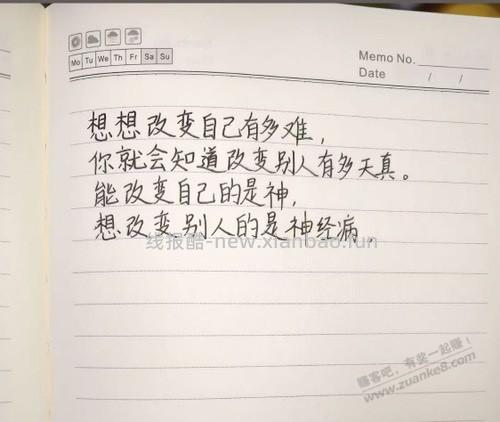 Mo Tu We Th Fr Sa Su
Memo No.
Date / /
想想改变自己有多难，
你就会知道改变别人有多天真。
能改变自己的是神，
想改变别人的是神经病。
线报酷-new.xianbao.fun
赚客吧，有奖一起赚！
www.zuanke8.com